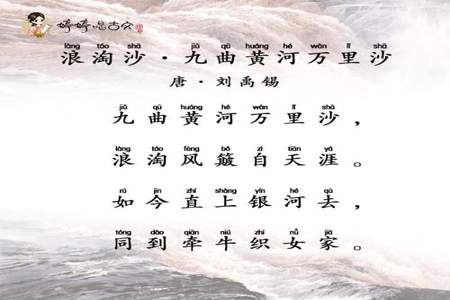 婷婷唱古文
làng táo shā jiǔ qǔ huáng hé wàn lǐ shā
浪淘沙·九曲黄河万里沙
唐·刘禹锡
jiǔ qǔ huáng hé wàn lǐ shā
九曲黄河万里沙，
làng táo fēng bǒ zì tiān yá
浪淘风簸自天涯。
rú jīn zhí shàng yín hé qù
如今直上银河去，
tóng dào qiān niú zhī nǚ jiā
同到牵牛织女家。